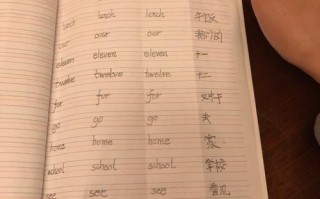 lunch lunch lunch 午饭
our our our 我们的
eleven eleven eleven 十一
twelve twelve twelve 十二
for for for 对于
go go go 去
home home home 家
school school school 学校
see see see 看见